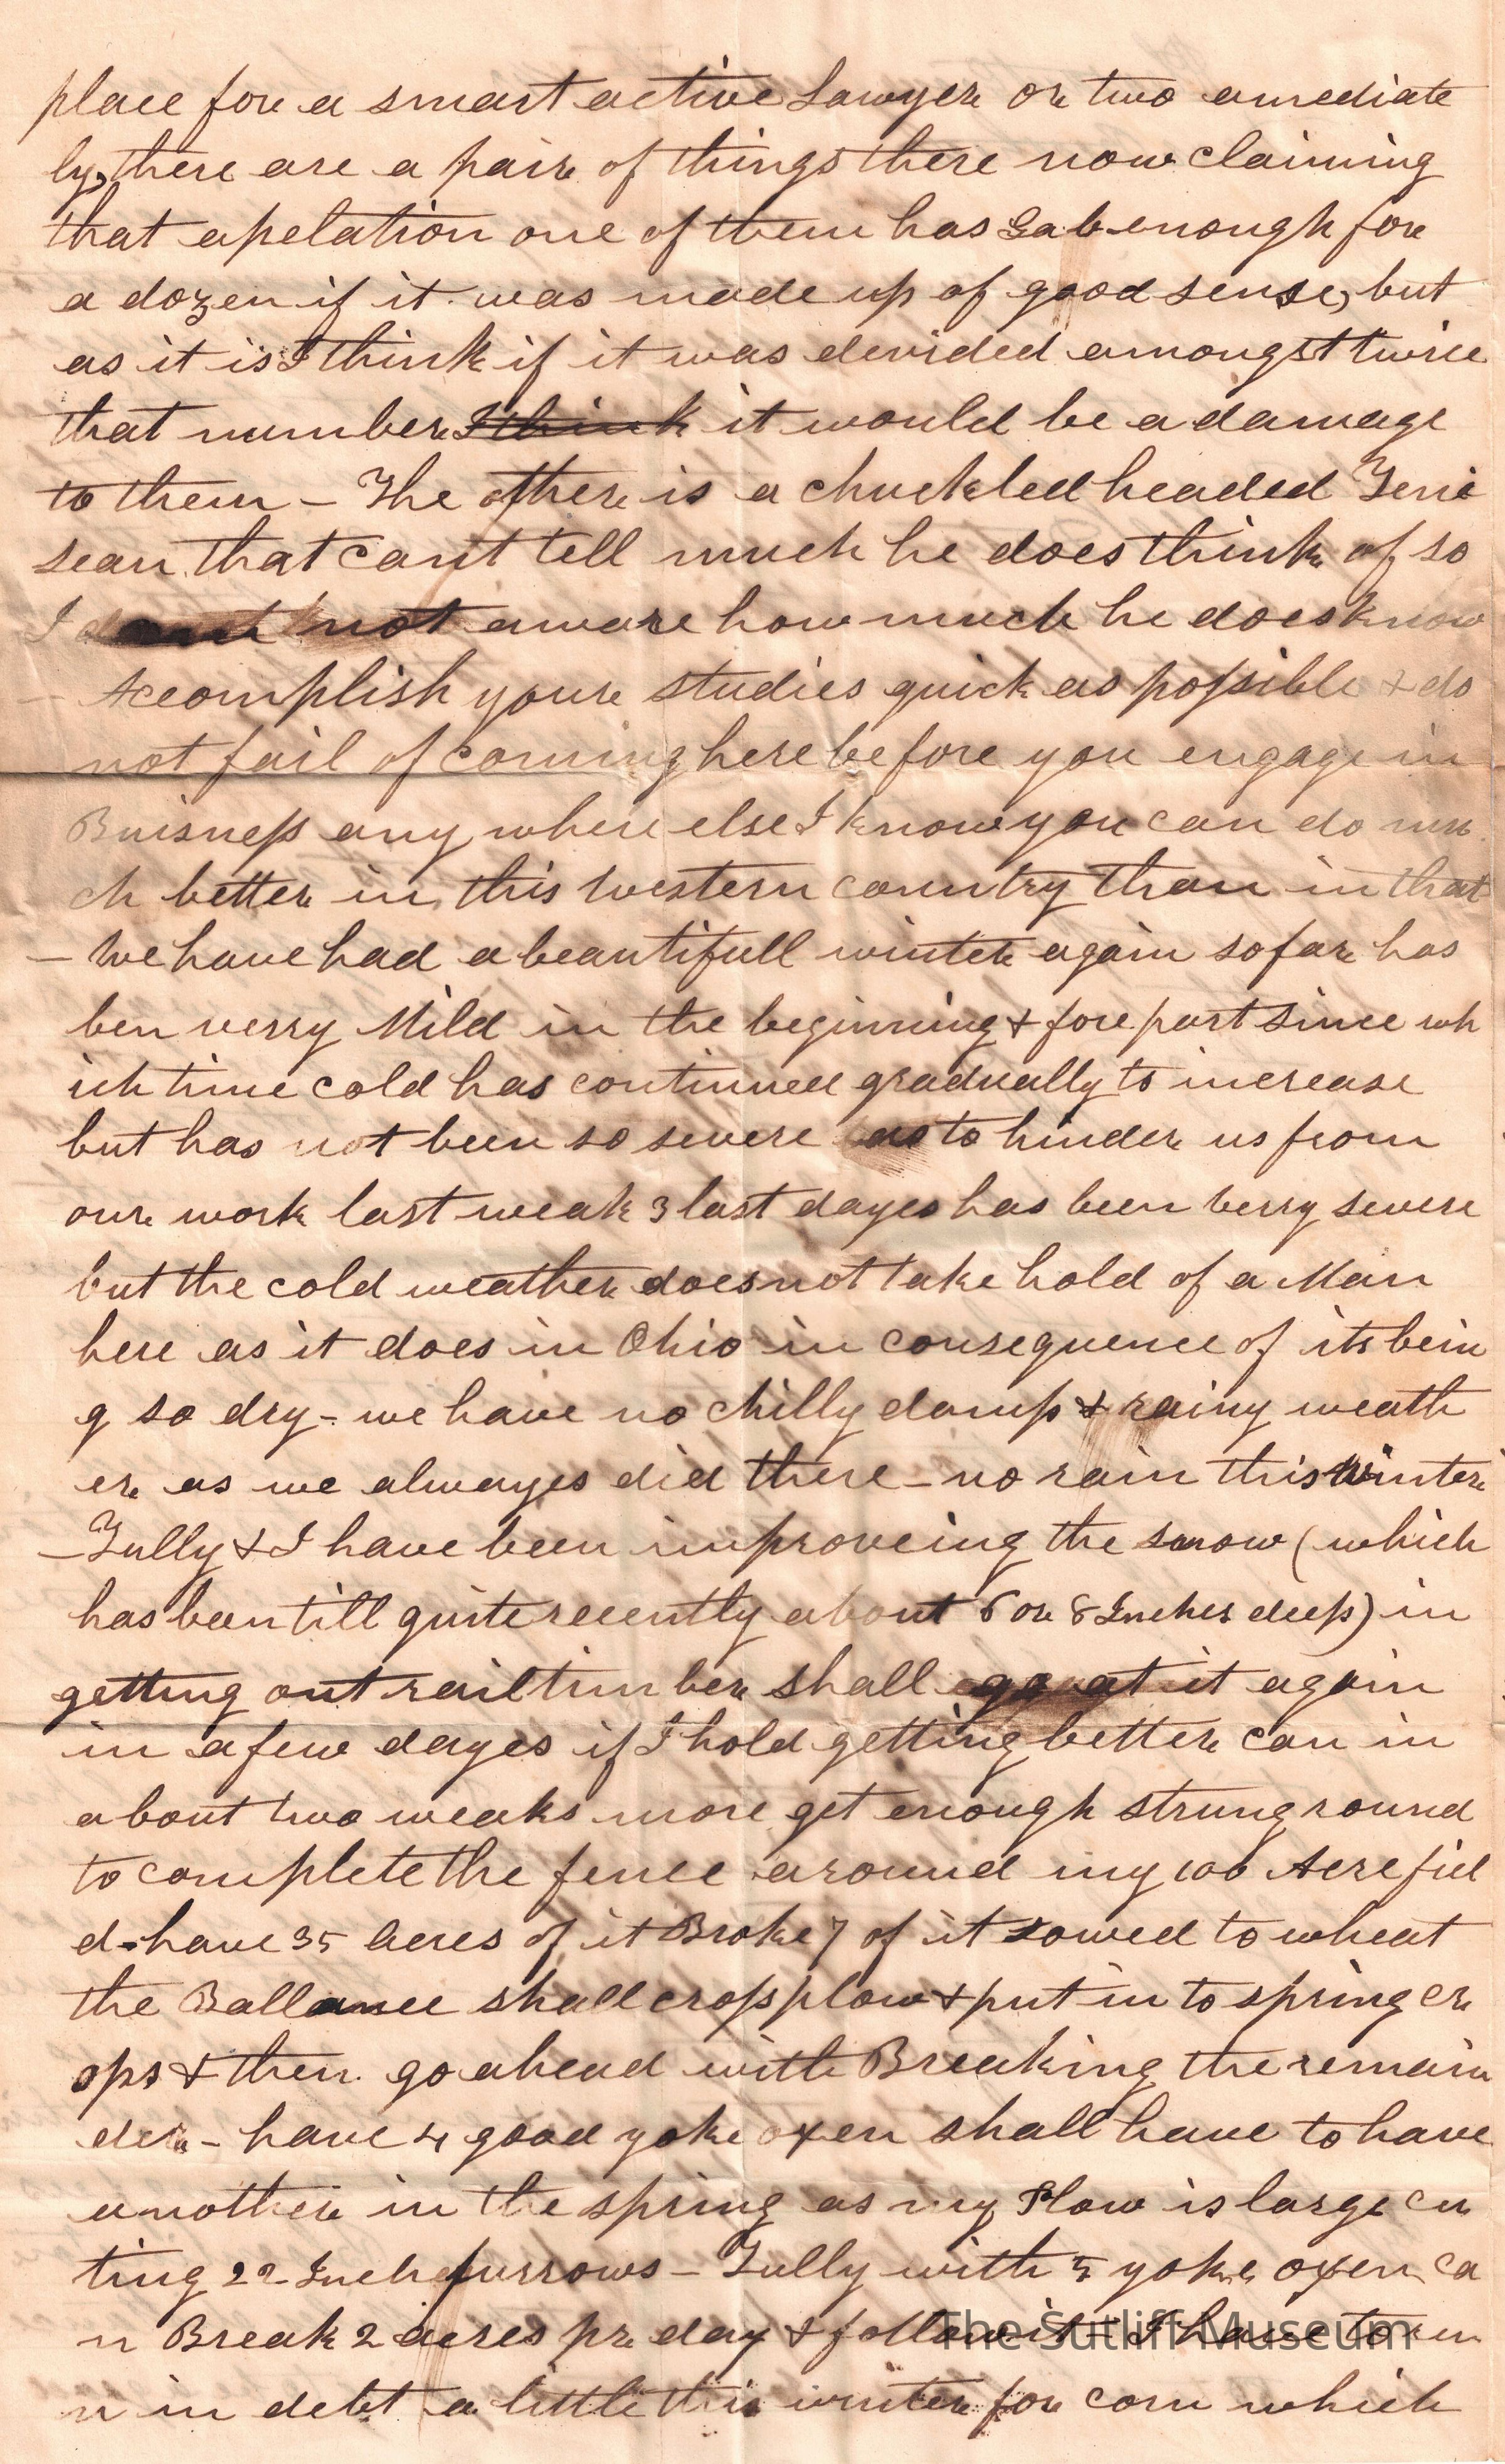 place fore a smart active Lawyer or two amediate
ly, there are a pair of things there now claiming
that apelation one of them has Gab enough fore
a dozen if it was made up of good sense, but
as it is I think if it was devided amongst twice
that number I think it would be a damage
to them - The other is a chuckled headed Tene
sean that cant tell much he does think of so
I not aware how much he does know
- Accomplish youre studies quick as possible & do
not fail of coming here before you engage in
Buisness any where else I know you can do mu
ch better in this western country than in that
- We have had a beautifull winter again so far has
ben verry Mild in the beginning & fore part since wh
ich time cold has continued gradually to increase
but has not been so severe as to hinder us from
oure work last weak 3 last dayes has been verry severe
but the cold weather does not take hold of a Man
here as it does in Ohio in consequence of its bein
g so dry - we have no chilly damp & rainy weath
er as we alwayes did there - no rain this winter
- Tully & I have been improveing the snow (which
has been till quite recently about 6 or 8 Inches deep) in
getting out rail timber shall go at it again
in a few dayes if I hold getting better can in
about two weaks more get enough strung round
to complete the fence around my 100 Acre fiel
d - have 35 acres of it Broke 7 of it sowed to wheat
the Ballance shall cross plow & put in to spring cr
ops & then go ahead with Breaking the remain
der - have 4 good yoke oxen shall have to have
another in the spring as my Plow is large cu
ting 22 Inch furrows - Tully with 5 yoke oxen ca
n Break 2 acres pr day & follow it - I have to ru
n in debt a little this winter for corn which
The Sutliff Museum